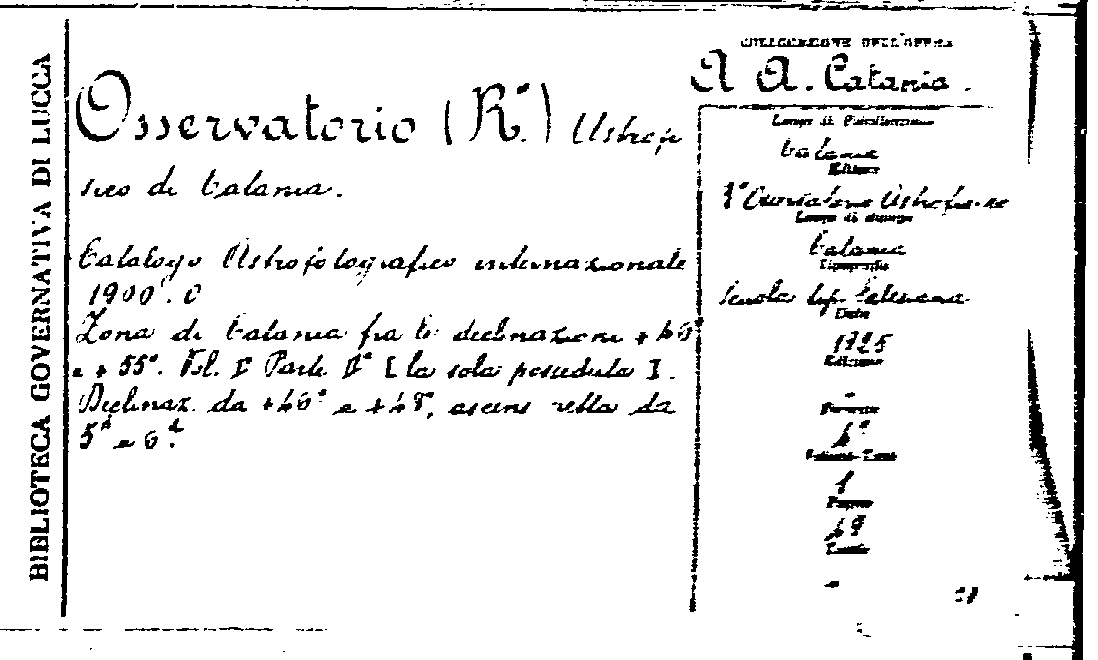 BIBLIOTECA GOVERNATIVA DI LUCCA
Osservatorio (R.°) Astrofi
sico di Catania.
Catalogo Astrofotografico internazionale
1900.0
Zona di Catania fra le declinazioni + 46°
e + 55°. Vol. I° Parte [la sola posseduta].
Declinaz. da +46° e +48°, ascens retta da
5ʰ e 6ʰ.
COLLOCAZIONE DELL'OPERA
A A. Catania.
Luogo di Pubblicazione
Catania
Editore
R° Osservatorio Astrofisico
Luogo di stampa
Catania
Tipografia
Scuola tip. Salesiana
Data
1925
Edizione
-
Formato
4°
Volumi
1
Pagine
49
Tavole
-